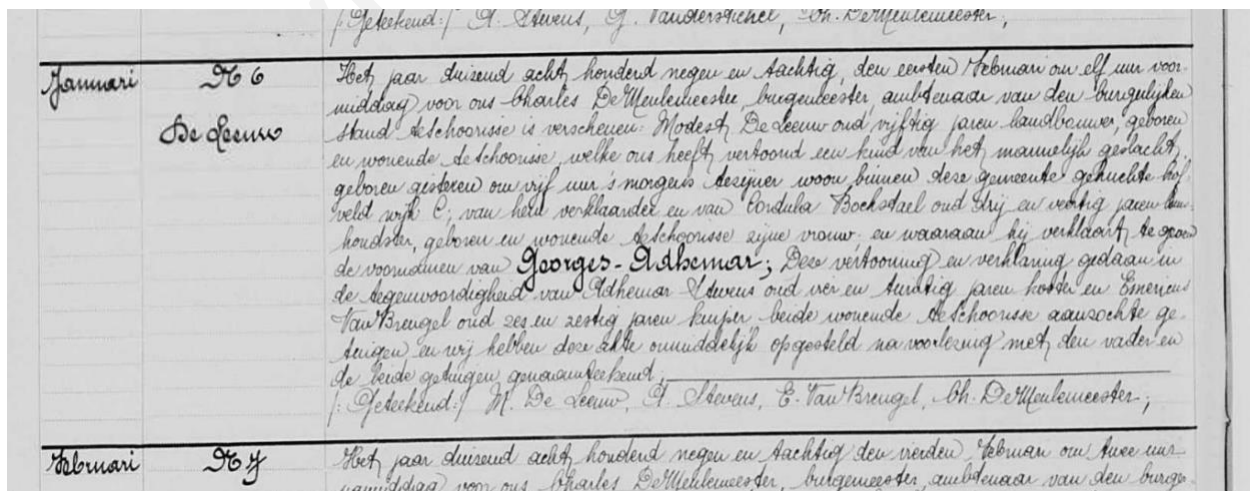 /:Geteekend:/ A. Stevens, G. Vanderstichel, Ch. DeMeulemeester;
Januari
N 6
De Leeuw
Het jaar duizend acht honderd negen en tachtig, den eersten Februari om elf uur voor-
middag, voor ons Charles DeMeulemeester, burgemeester, ambtenaar van den burgerlijken
stand te Schoorisse is verschenen: Modest De Leeuw oud vijftig jaren landbouwer, geboren
en wonende te Schoorisse, welke ons heeft vertoond een kind van het mannelijk geslacht,
geboren gisteren om vijf uur 's morgens te zijner woon binnen deze gemeente gehuchte hof-
veld wijk C, van hem verklaarder en van Cordula Bockstael oud drij en veertig jaren
houdster, geboren en wonende te Schoorisse zijne vrouw en waaraan hij verklaart te geven
de voornamen van Georges-Adhemar; Deze vertooning en verklaring gedaan in
de tegenwoordigheid van Adhemar Stevens oud vier en twintig jaren koster en Emericus
Van Breugel oud zes en zestig jaren kuiper beide wonende te Schoorisse aanzochte ge-
tuigen en wij hebben deze akte onmiddelijk opgesteld na voorlezing met den vader en
de beide getuigen genaamteekend;
/:Geteekend:/ M. De Leeuw, A. Stevens, E. Van Breugel, Ch. DeMeulemeester;
Februari
N 7
Het jaar duizend acht honderd negen en tachtig den vierden Februari om twee uur
namiddag voor ons Charles DeMeulemeester, burgemeester, ambtenaar van den burge-